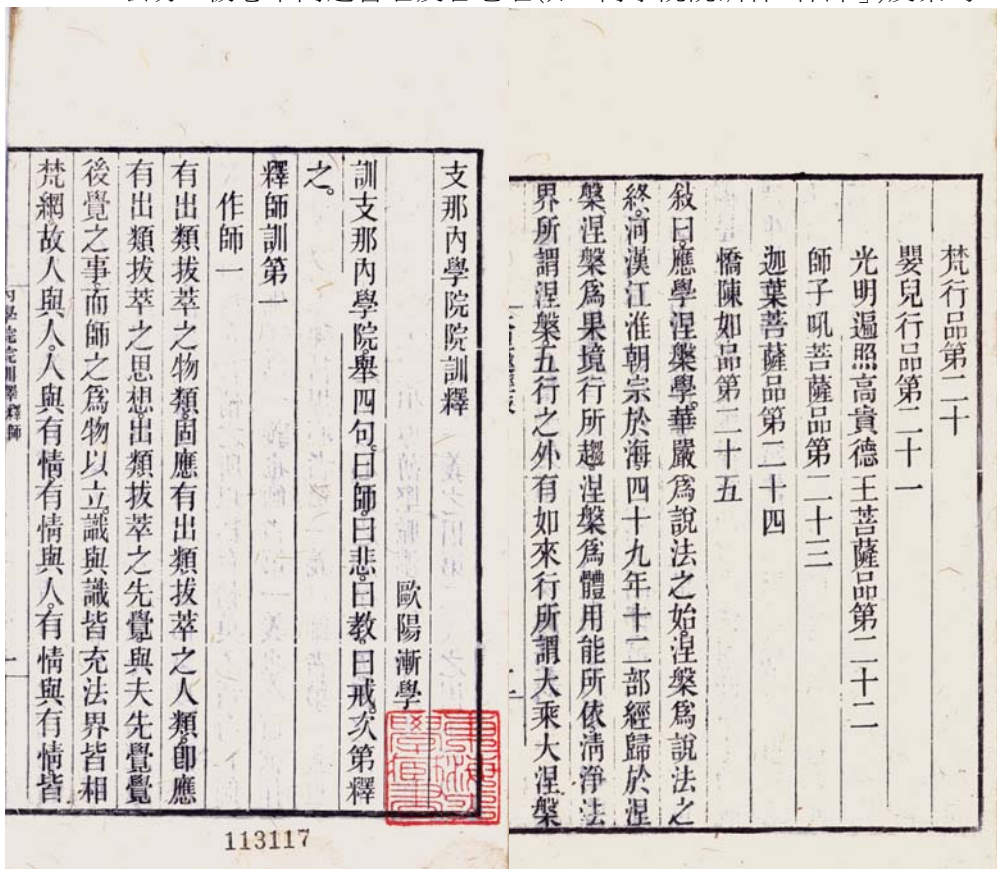 梵行品第二十
嬰兒行品第二十一
光明遍照高貴德王菩薩品第二十二
師子吼菩薩品第二十三
迦葉菩薩品第二十四
憍陳如品第二十五
敍曰。應學涅槃學。華嚴爲說法之始。涅槃爲說法之
終。河漢江淮朝宗於海。四十九年十二部經歸於涅
槃。涅槃爲果。境行所趨。涅槃爲體。用能所依。淸淨法
界所謂涅槃。五行之外有如來行。所謂大乘大涅槃
支那內學院院訓釋
歐陽漸學
訓支那內學院。舉四句。曰師。曰悲。曰教。曰戒。次第釋
之。
釋師訓第一
作師一
有出類拔萃之物類。固應有出類拔萃之人類。卽應
有出類拔萃之思想。出類拔萃之先覺。與夫先覺覺
後覺之事。而師之爲物以立。識與識皆充法界。皆相
梵網。故人與人。人與有情。有情與人。有情與有情皆
內學院院訓釋 釋師
一
113117